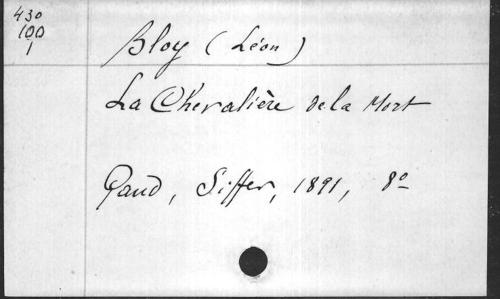 430
100
1
Bloy (Léon)
La Chevalière de la Mort
Gand, Siffer, 1891, 8º